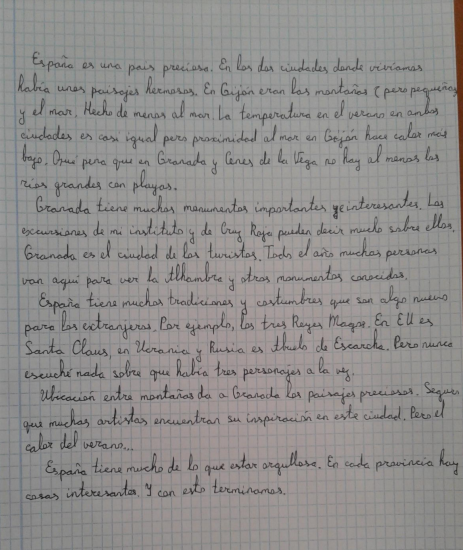 España es una país preciosa. En las dos ciudades donde vivíamos
había unos paisajes hermosos. En Gijón eran las montañas (pero pequeñas)
y el mar. Hecho de menos al mar. La temperatura en el verano en ambas
ciudades es casi igual pero proximidad al mar en Gijón hace calor mas
bajo. Qué pena que en Granada y Cenes de la Vega no hay al menos los
ríos grandes con playas.
Granada tiene muchos monumentos importantes y interesantes. Las
excursiones de mi instituto y de Cruz Roja pueden decir mucho sobre ellos.
Granada es el ciudad de los turistas. Todo el año muchas personas
van aquí para ver la Alhambra y otros monumentos conocidos.
España tiene muchas tradiciones y costumbres que son algo nuevo
para los extranjeros. Por ejemplo, los tres Reyes Magos. En EU es
Santa Claus, en Ucrania y Rusia es Abuelo de Escarcha. Pero nunca
escuché nada sobre que había tres personajes a la vez.
Ubicación entre montañas da a Granada los paisajes preciosos. Seguro
que muchos artistas encuentran su inspiración en este ciudad. Pero el
calor del verano...
España tiene mucho de lo que estar orgullosa. En cada provincia hay
cosas interesantes. Y con esto terminamos.